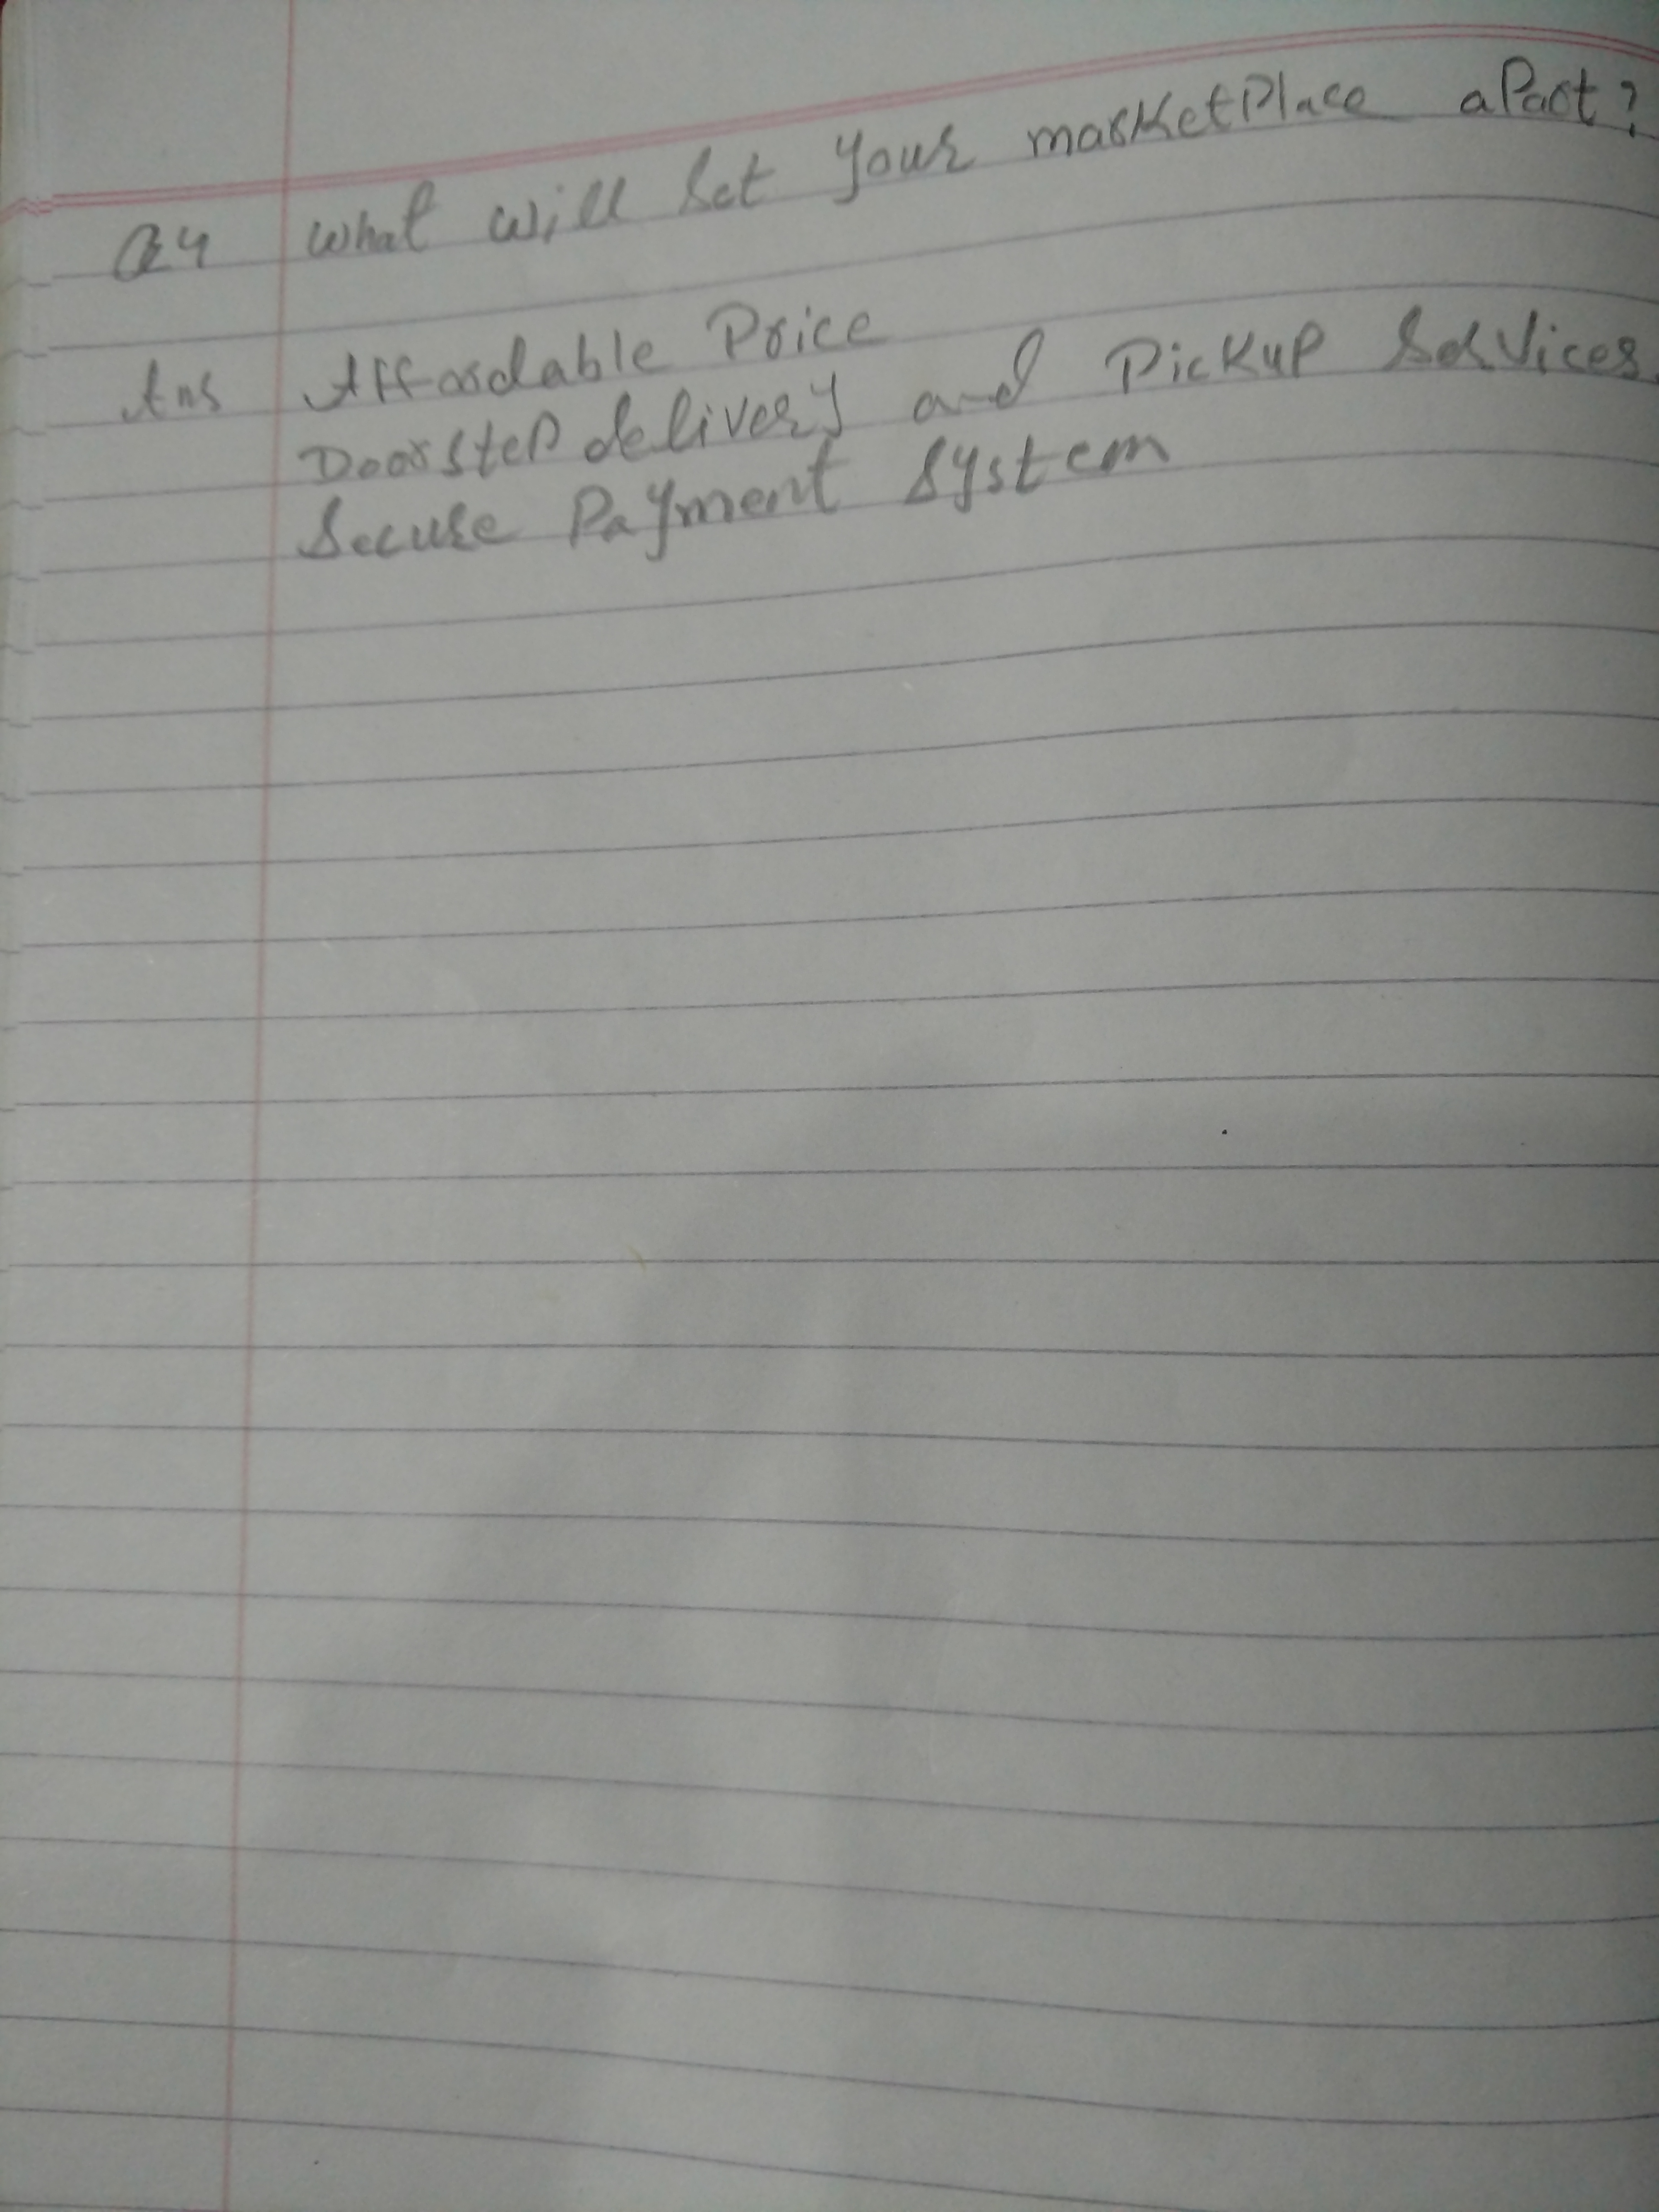 Q4 What will set your marketPlace aPart?
Ans Affordable Price
Doorstep delivery and Pickup Services
Secure Payment System